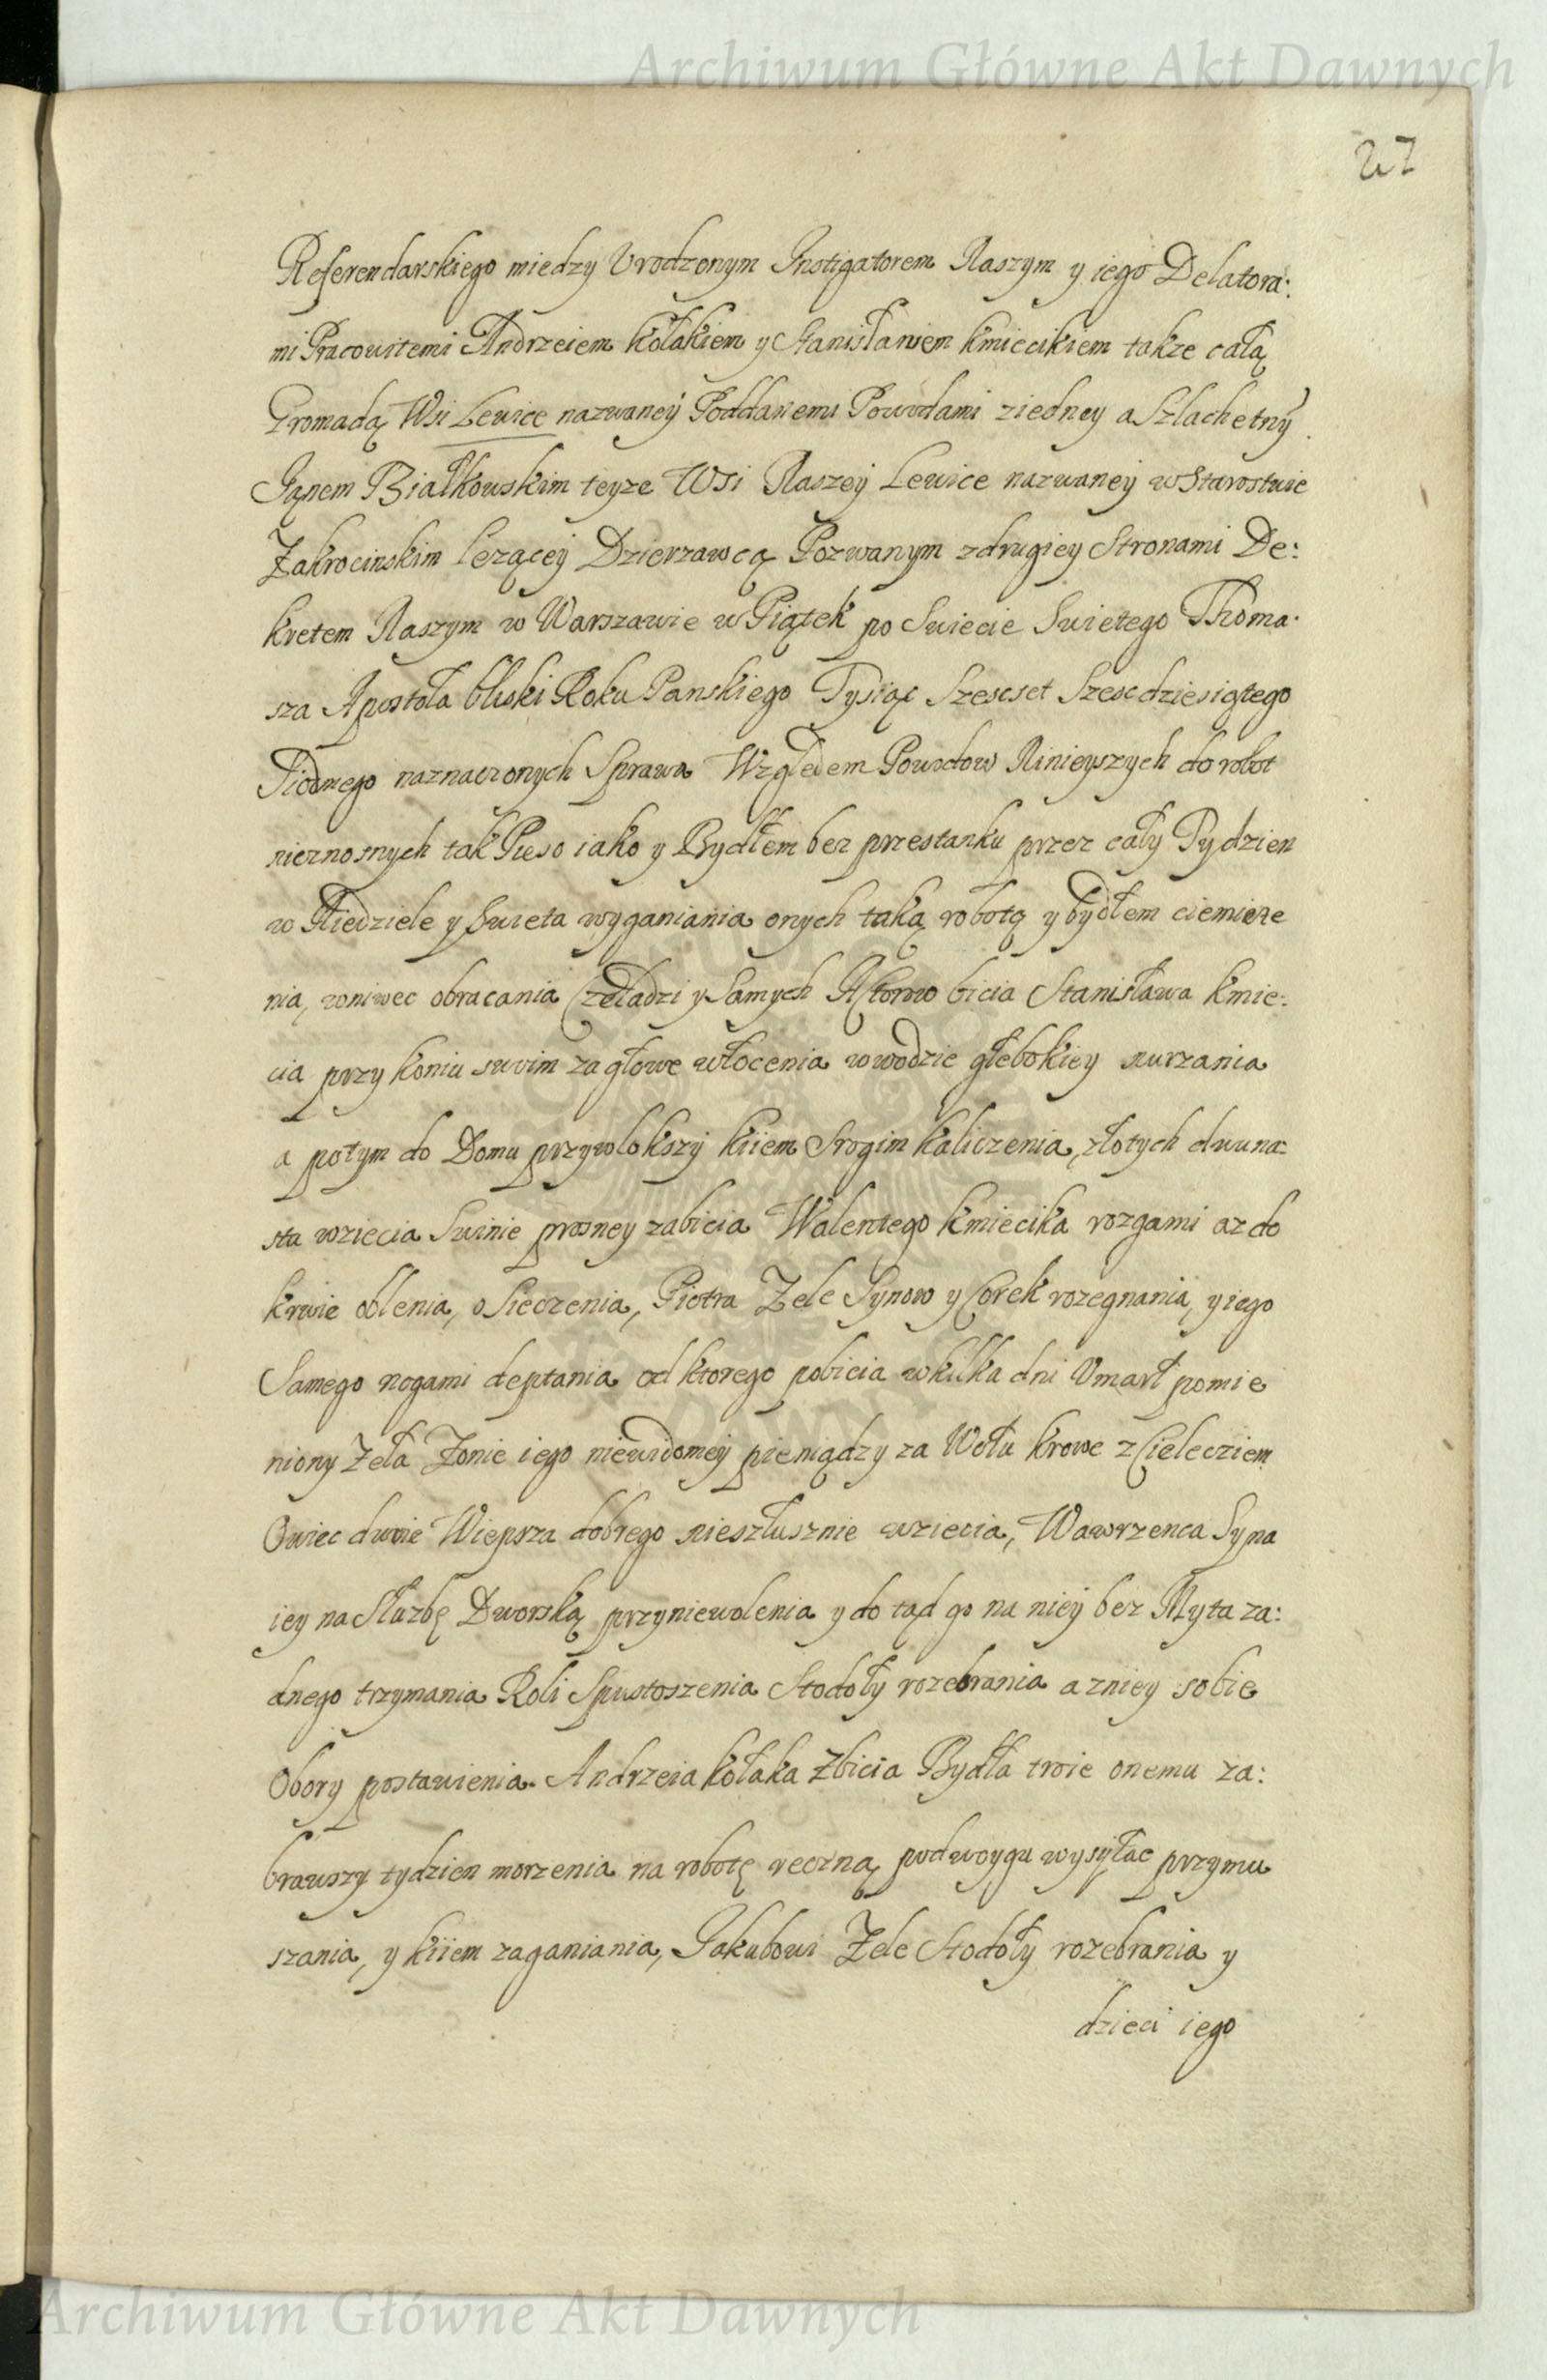 Archiwum Główne Akt Dawnych
27
Referendarskiego miedzy Urodzonym Instigatorem Naszym y iego Delatora:
mi Pracowitemi Andrzeiem Kołakiem y Stanisławem Kmiecikiem takze całą
Gromadą Wsi Lewice nazwaney Poddanemi Powodami ziedney a Szlachetny
Ianem Białkowskim teyze Wsi Naszey Lewice nazwaney w Starostwie
Zakrocinskim lezącey Dzierzawcą Pozwanym zdrugiey Stronami De:
kretem Naszym w Warszawie w Piątek po Swiecie Swietego Thoma
sza Apostoła bliski Roku Panskiego Tysiąc Szescset Szescdziesiątego
Siodmego naznaczonych Sprawa Względem Powodow Ninieyszych do robot
nieznosnych tak Pieso iako y Bydłem bez przestanku przez cały Tydzien
w Niedziele y Swieta wyganiania onych taką robotą y bydłem ciemięze
nia, wniwec obracania Czeladzi y Samych Aktorow bicia Stanisława Kmie:
cia przy koniu swoim za głowe włocenia w wodzie głebokiey nurzania
a potym do Domu przywlokszy kiiem Srogim kaliczenia, złotych dwuna:
sta wziecia Swinie prosney zabicia Walentego Kmiecika rozgami az do
krwie oblenia, osieczenia, Piotra Zele Synow y Corek rozegnania, y iego
Samego nogami deptania od ktorego pobicia w kilka dni Vmarł pomie
niony Zeła Zonie iego niewidomey pieniądzy za Wołu krowe z Cieleciem
Owiec dwoie Wieprza dobrego niesztusznie wziecia, Wawrzenca Syna
iey na Służbę Dworską przyniewolenia y do tąd go na niey bez Myta za:
dnego trzymania Roli Spustoszenia Stodoły rozebrania a zniey sobie
Obory postawienia. Andrzeia Kołaka Zbicia Bydła troie onemu za:
brawszy tydzien morzenia na robotę reczną podwoygu wysyłac przymu
szania, y kiiem zaganiania, Iakubowi Zele Stodoły rozebrania y
dzieci iego
Archiwum Główne Akt Dawnych